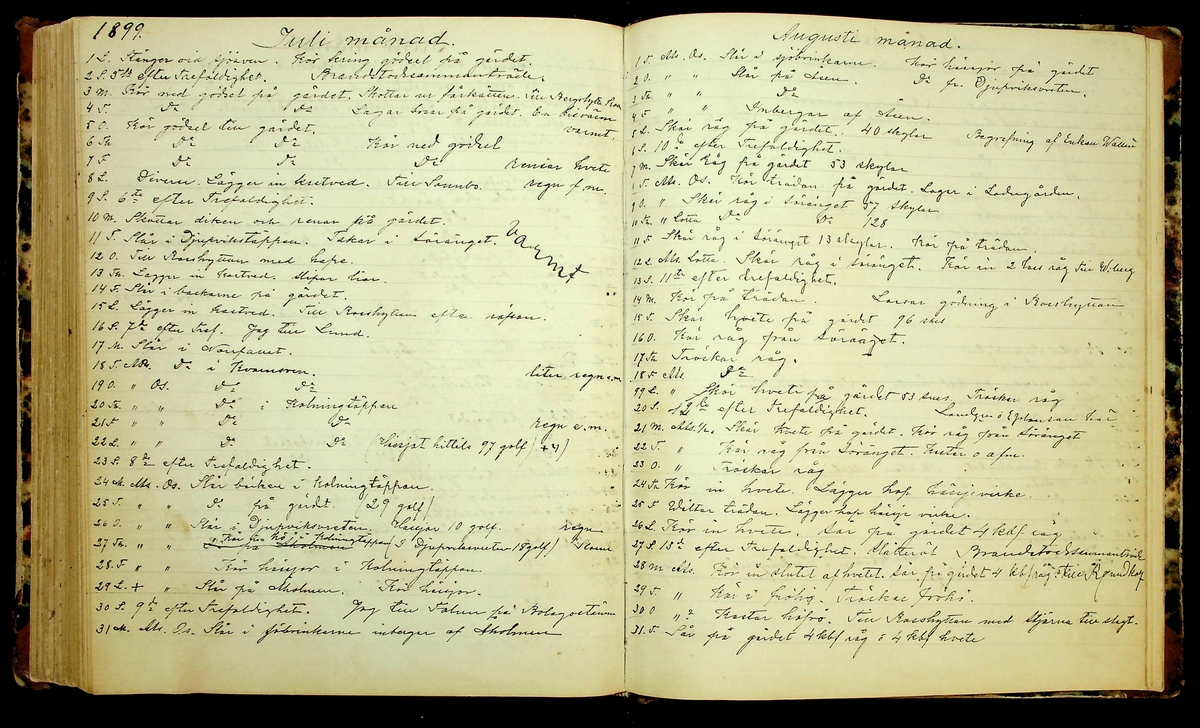 1899.
Juli månad.
1 L. Stänger vid sjön. Kör kring gödsel på gärdet.
2 S. 5te efter Trefaldighet. Brandstodssammanträde.
3 M. Kör ned gödsel på gärdet. Skottar ur fårkätten. Till Bergshytte
4 T. Do Do Lagar broar på gärdet. En bisvärm
5 O. Kör gödsel till gärdet. varmt.
6 Th Do Do Kör ned gödsel
7 F Do Do Do rensar hvete
8 L. Diverse. Lägger in kastved. Till Sannbo. regn f.m.
9 S. 6te efter Trefaldighet.
10 M. Skottar diken och renar på gärdet.
11 T. Slår i Djupvikstäppan. Takar i Söränget. varmt
12 O. Till Rosshyttan med hafre.
13 Th. Lägger in kastved. Slipar liar.
14 F. Slår i backarne på gärdet.
15 L. Lägger in kastved. Till Rosshyttan efter
16 S. 7de efter Tref. Jag till Lund.
17 M. Slår i
18 T. Ms. Do i Kvarnvren. liten regn e.m.
19 O. " Os. Do Do
20 Th. " " Do i Kolningtäppan
21 F " " Do Do regn e.m.
22 L. " " Do Do (Hässjat hittils 97 golf) (+4)
23 S. 8de efter Trefaldighet.
24 M. Ms. Os. Slår backen i Kolningtäppan.
25 T. " " Do på gärdet. (29 golf)
26 O. " " Slår i Djupviksvreten. Hässjar 10 golf. regn
27 Th. " " Kör hö i Kolningtäppan (I Djupviksvreten 18 golf)
28 F. " " Kör hässjor i Kolningtäppan
29 L. + " Slår på Aholmen. Kör hässjor.
30 S. 9de efter Trefaldighet. Jag till Falun på Bolagsstämma
31 M. Ms. Os. Slår i sjöbrinkarne inbergar af Aholmen
Augusti månad.
1 T. Ms. Os. Slår i sjöbrinkarne. Kör hässjor på gärdet
2 O. " " Slår på Åsen Do fr. Djupviksvreten.
3 Th. " " Do
4 F. " " Inbergar af Åsen.
5 L. Skär råg på gärdet. 40 skylar Begrafning af Enkan Wallin
6 S. 10de efter Trefaldighet.
7 M. Skär Råg på gärdet 53 skylar
8 T. Ms. Os. Kör trädan på gärdet. Lagar i Ladugården.
9 O. " Skär råg i Söränget 57 skylar
10 Th. " Lotta Do Do 128
11 F. Skär råg i Söränget 13 skylar. Kör på trädan.
12 L. Ms. Lotta. Skär råg i Söränget. Kör in 2 lass råg till Wiberg
13 S. 11te efter Trefaldighet.
14 M. Kör på trädan. Lossar gödning i Rosshyttan
15 T. Skär hvete på gärdet 96 snes
16 O. Kör råg från Söränget.
17 Th. Tröskar råg.
18 F. Ms. Do
19 L. " Skär hvete på gärdet 53 snes. Tröskar råg
20 S. 12te efter Trefaldighet.
21 M. Ms. Skär hvete på gärdet. Kör råg från Söränget
22 T. " Kör råg från Söränget. Kastar o afm.
23 O. " Tröskar råg
24 Th. Kör in hvete. Lägger hop hässjevirke.
25 F. Welter trädan. Lägger hop hässje virke.
26 L. Kör in hvete. Sår på gärdet 4 kbf råg
27 S. 13de efter Trefaldighet. Slåtteröl Brandstodssammanträde
28 M Ms. Kör in slutet af hvetet. Sår på gärdet 4 kbf råg. Till
29 T. " Kör i fröhö. Tröskar fröhö.
30 O " Kastar höfrö. Till Rosshyttan med Stjärna till slagt.
31. T. Sår på gärdet 4 kbf råg o 4 kbf hvete